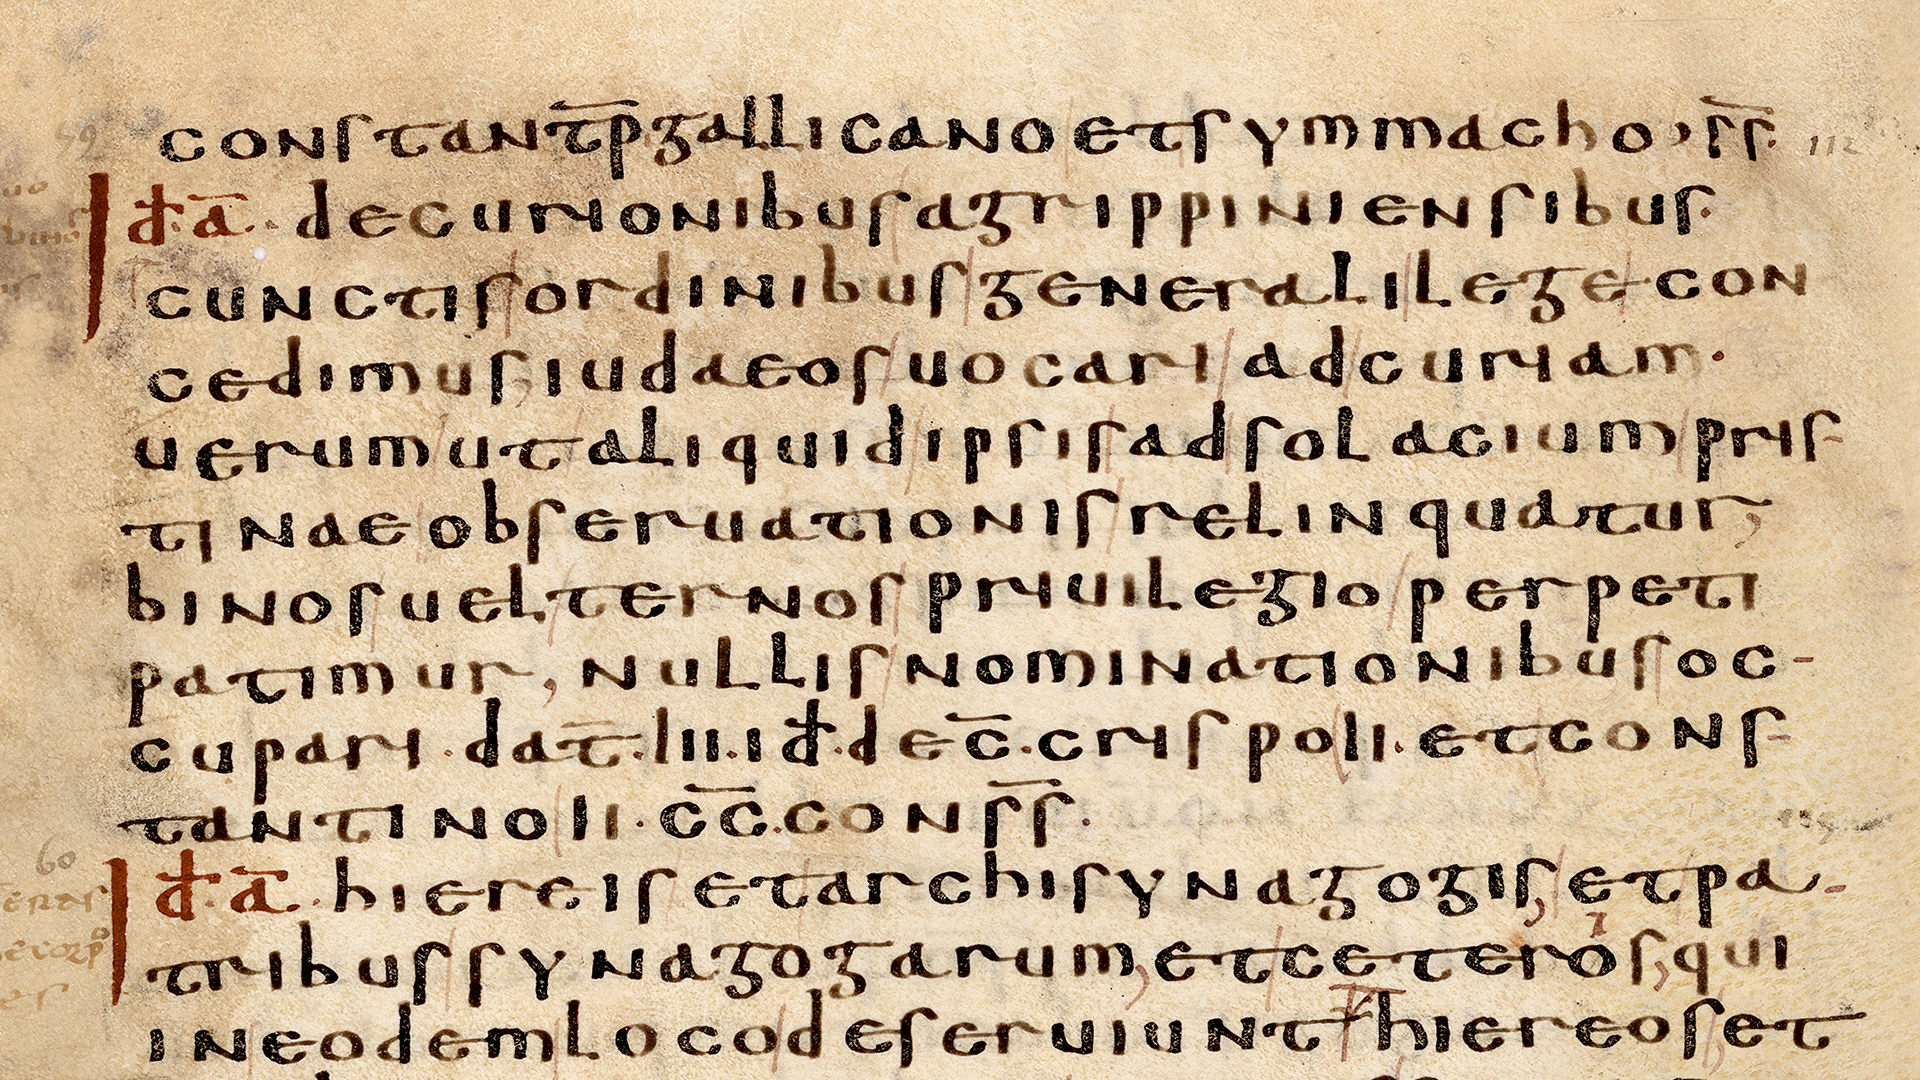 constant̄p̄gallicano etsymmacho,s̄s̄.
đ.ā. decurionibusagrippiniensibus.
cunctisordinibusgeneralilegecon
cedimus,iudaeosuocariadcuriam.
uerumutaliquidipsisadsolaciumpris-
tinaeobseruationisrelinquatur,
binosuelternosprivilegioperpeti
patimur, nullisnominationibusoc-
cupari.dat̄.IIII.iđ.dec̄.crispoII.etcons-
tantinoII.c̄c̄.conss̄.
đ.ā. hiereisetarchisynagogis,etpa-
tribussynagogarum,etceteros,qui
ineodemlocodeseruiunt hiereoset